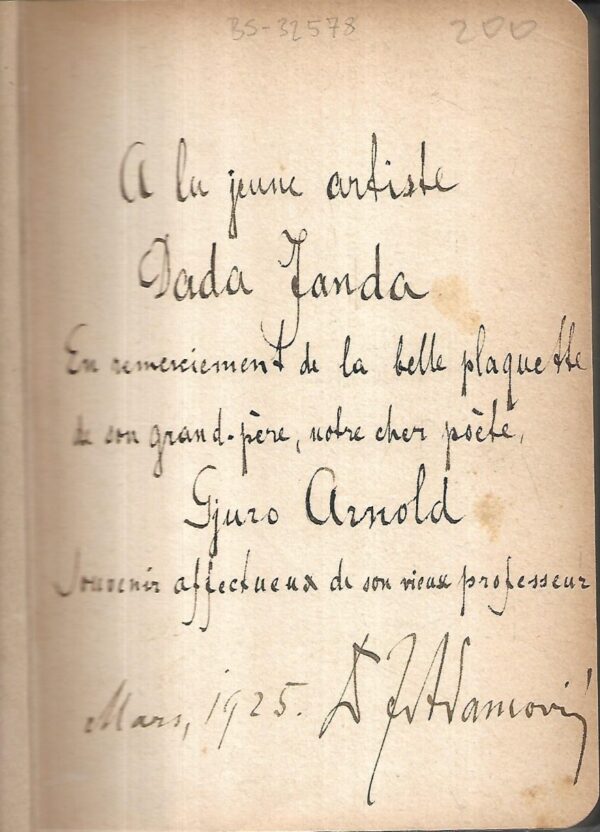 BS-32578 200
A la jeune artiste
Dada Janda
En remerciement de la belle plaquette
de son grand-père, notre cher poète,
Gjuro Arnold
Souvenir affectueux de son vieux professeur
Mars, 1925. Dr J Adamović